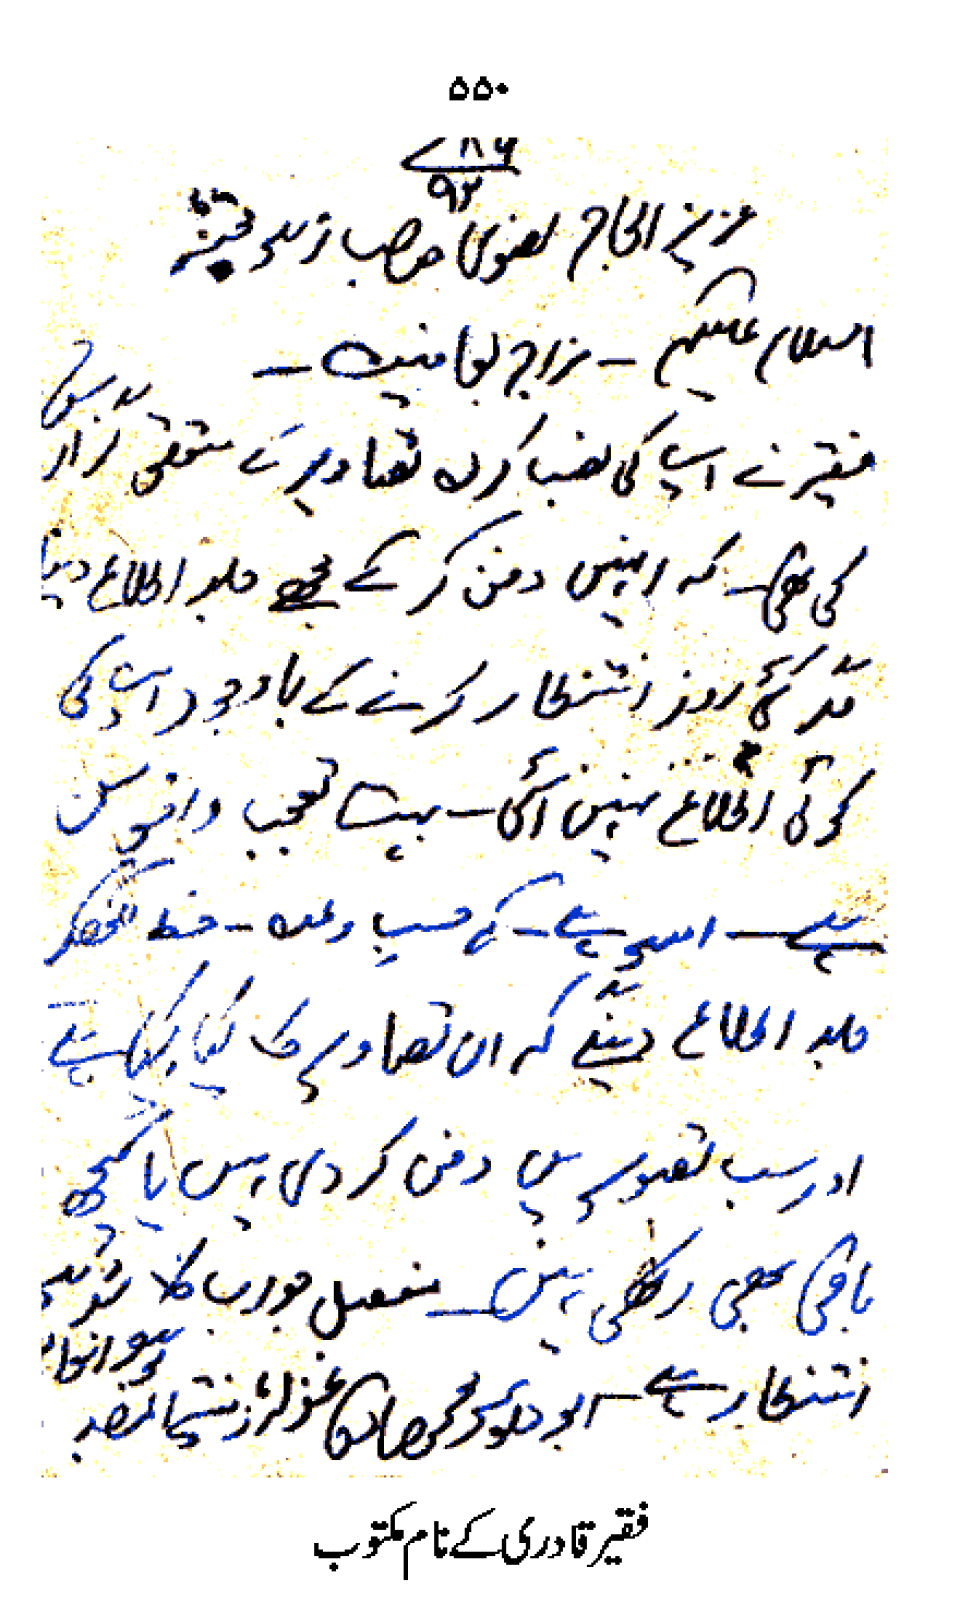 ۵۵۰
۷۸۶
۹۲
عزیز الحاج رضوی صاحب زید
السلام علیکم ـ مزاج بعافیت ـ
فقیر نے آپ کی نصب کردہ تصاویر کے متعلق گزارش
کی تھی ـ کہ انہیں دفن کر کے مجھے جلد اطلاع دینا
مگر کئی روز انتظار کرنے کے باوجود آپ کی
کوئی اطلاع نہیں آئی ـ بہت تعجب و افسوس
ہے ـ امید ہے ـ کہ حسب وعدہ ـ خط لکھکر
جلد اطلاع دینگے کہ ان تصاویر کا کیا کیا ہے
اور سب تصویریں دفن کر دی ہیں یا کچھ
باقی بھی رکھی ہیں ـ مفصل جواب کا شدید
انتظار ہے ـ ابو داؤد محمد صادق غفرلہ
فقیر قادری کے نام مکتوب